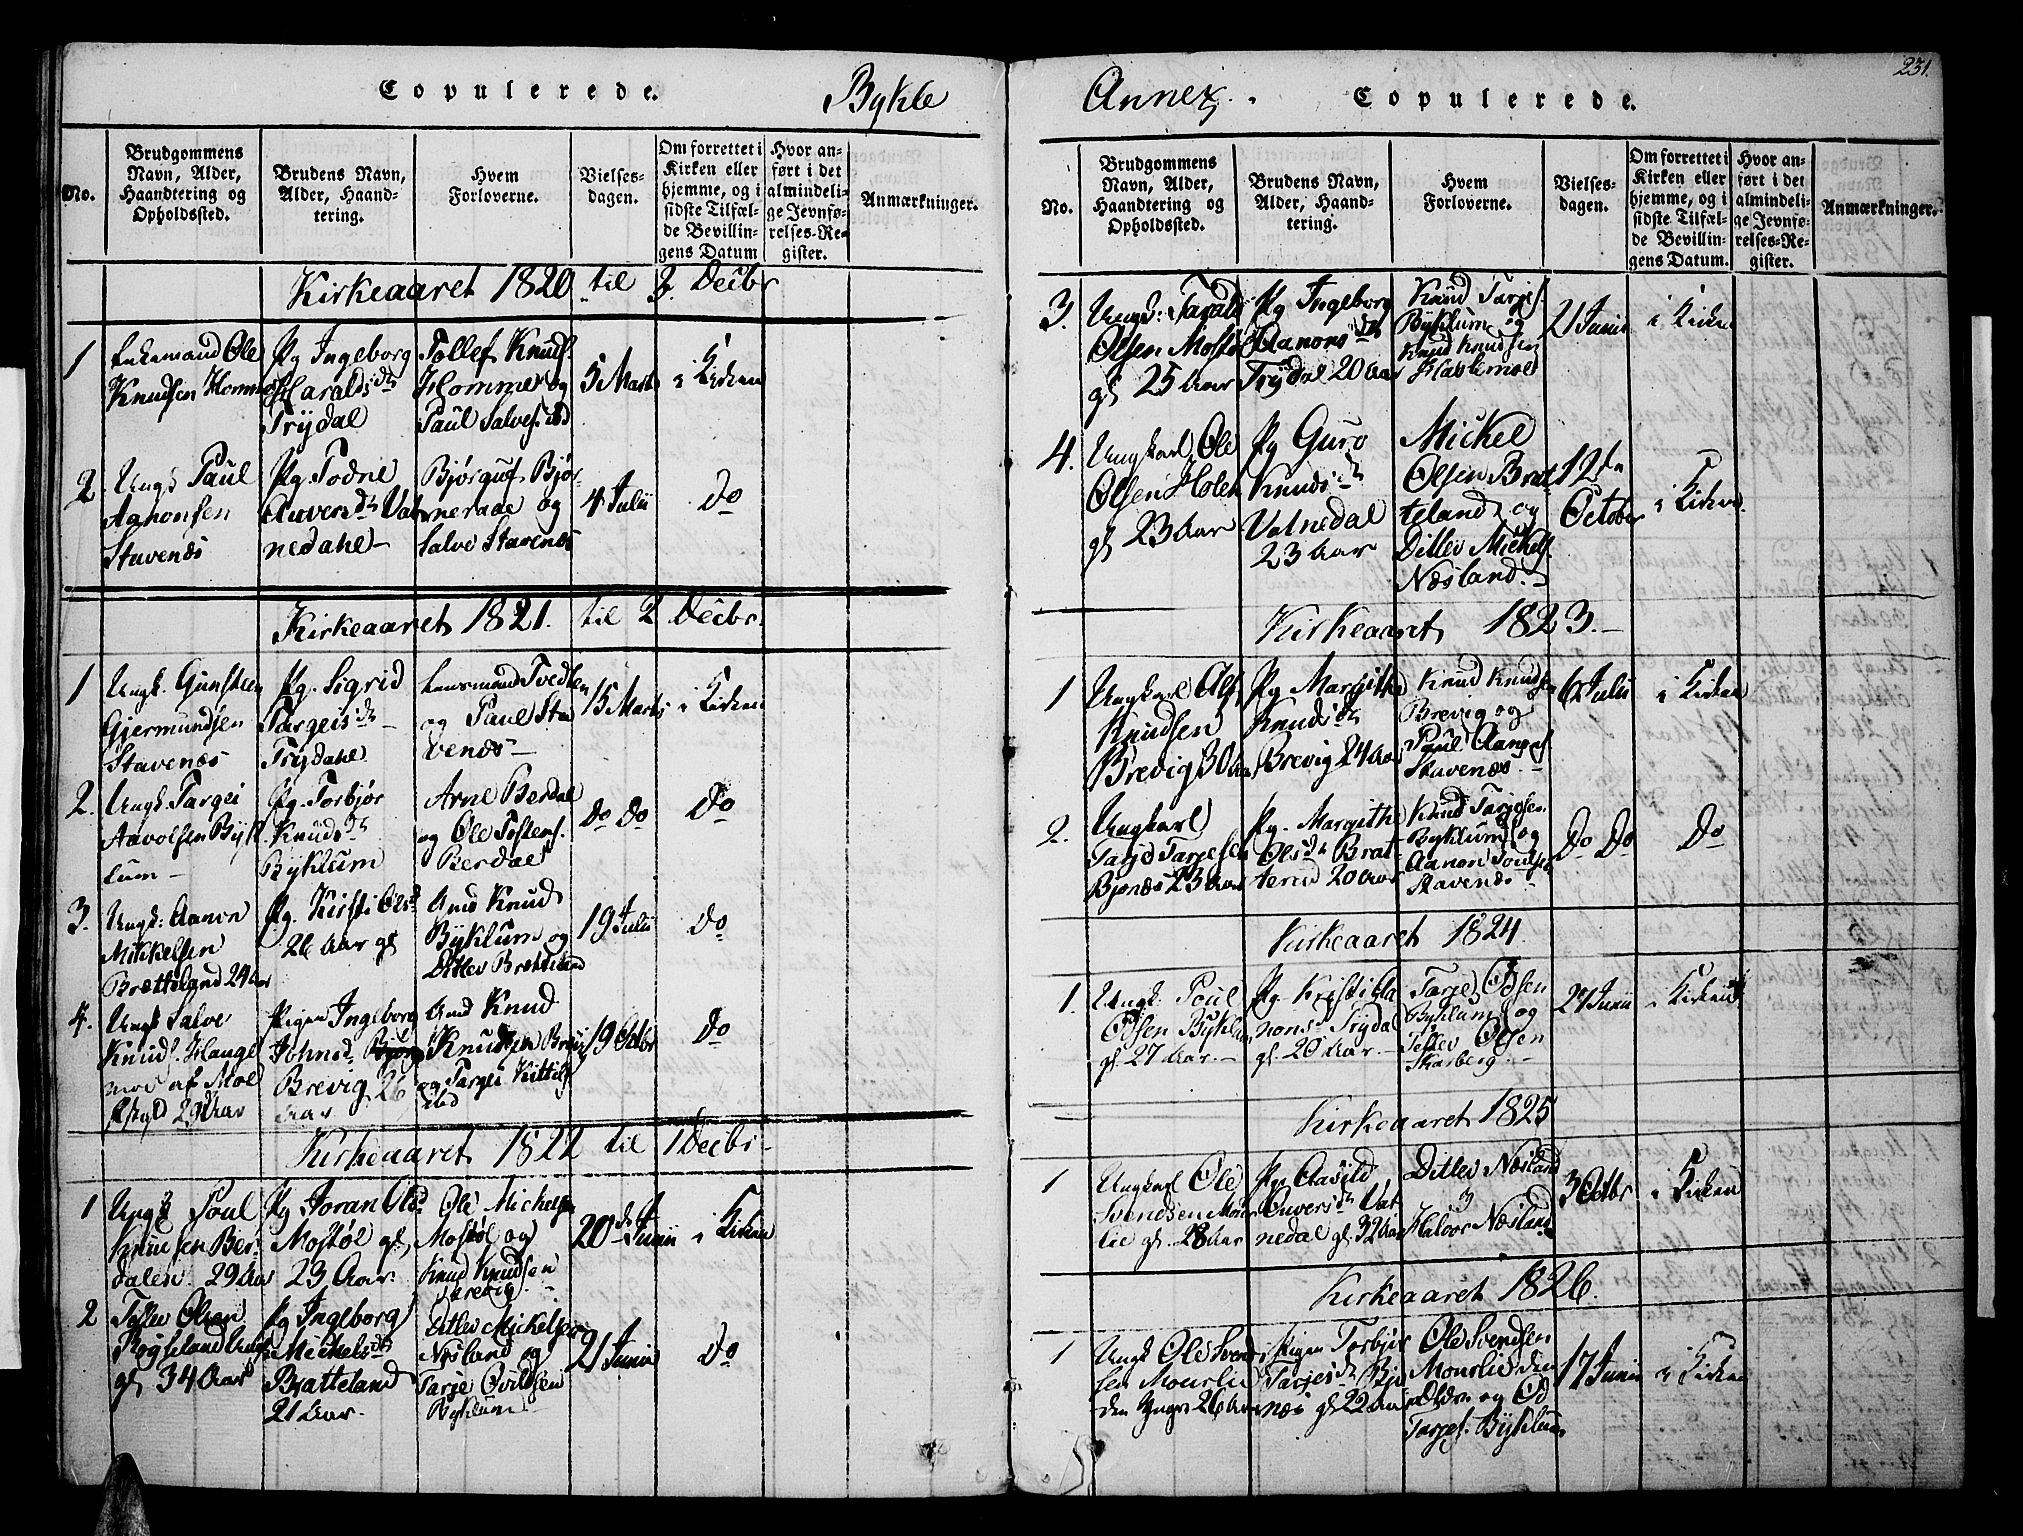 Copulerede.
Bykle
No.
Brudgommens
Navn, Alder,
Haandtering og
Opholdssted.
Brudens Navn,
Alder, Haand-
tering.
Hvem
Forloverne.
Vielses-
dagen.
Om forrettet i
Kirken eller
hjemme, og i
sidste Tilfæl-
de Bevillin-
gens Datum
Hvor an-
ført i det
almindeli-
ge Jevnfø-
relses-Re-
gister.
Anmærkninger.
Kirkeaaret 1820 til 3 Decbr
1
Enkemand Ole
Knudsen Hommer
Pg Ingeborg
Haralds dtr
Trydal
Tollef Knuds.
Hommer og
Paul Salves. ibd
5 Marts
i Kirken
2
Ungk Paul
Aanonsen
Stavenæs
Pg. Todne
Auvers dtr Vat
nedahl
Bjørguf Bjør
neraae og
Salve Stavenæs
4 Julii
Do
Kirkeaaret 1821. til 2 Decbr.
1
Ungk. Gunsten
Gjermundsen
Stavenæs
Pg. Sigrid
Targeis dtr
Trydahl
Lensmand Tvedten
og Paul Sta
venæs
15 Marts
i Kirken
2.
Ungk. Targei
Aavolsen Bykl
lum
Pg. Torbjør
Knuds dtr
Byklum
Arne Berdal
og Ole Tostens.
Berdal
Do Do
Do
3.
Ungk. Aanon
Mikkelsen
Brætteland 24 Aar
Pg. Kirsti Olsd
26 Aar gl
Gmd Knud
Byklum og
Ditlev Brætteland
19 Julii
Do
4.
Ungk Salve
Knuds. Hauge
moe af Moe
29 Aar
Pigen Ingeborg
Johnsd.
Brevig 26
Aar
Gmd Knud
Knudsen Brevig
og Targei Kittils
ibd
19 Octbr
Do
Kirkeaaret 1822 til 1 Decbr
1
Ungk Poul
Knudsen Ber
dalen 29 Aar
Pg Joran Olsd
Mostøl gl,
23 Aar
Ole Michelsen
Mostøl og
Knud Knudsen
Brevig.
20 de Junii
i Kirken
2
Tellev Olsen
Røyseland
gl 34 Aar
Pg Ingeborg
Michels dtr
Bratteland
21 Aar.
Ditlev Mickelsen
Næsland og
Tarje
Byklum
21 Junii
Do
231.
Annex.
Copulerede.
No.
Brudgommens
Navn, Alder,
Haandtering og
Opholdssted.
Brudens Navn,
Alder, Haand-
tering.
Hvem
Forloverne.
Vielses-
dagen.
Om forrettet i
Kirken eller
hjemme, og i
sidste Tilfæl-
de Bevillin-
gens Datum.
Hvor an-
ført i det
almindeli-
ge Jevnfø-
relses-Re-
gister.
Anmærkninger.
3.
Ungk: Tarald
Olsen Mostøl
gl 25 Aar
Pg Ingeborg
Aanons dtr
Trydal 20 Aar
Knud Tarjes.
Byklum og
Knud Knudsen
21 Junii
i Kirken
4.
Ungkarl Ole
Olsen Holen
gl 23 Aar
Pg Guro
Knuds dtr
Vatnedal
23 Aar
Mickel
Olsen Brat
teland og
Ditlev Mickels.
Næsland.
12 te
October
i Kirken
Kirkeaaret 1823.
1
Ungkarl
Knudsen
Brevig 30 Aar
Pg Margitha
Knuds dtr
Brevig 24 Aar
Knud Knudsen
Brevig og
Paul Aanons.
Stavenæs.
6 Julii
i Kirken
2.
Ungkarl
Tarjd Tarjesen
Bjønæs 23 Aar
Pg. Margithe
Ols dtr Brat-
terud 20 Aar
Knud Tarjesen
Byklum og
Aanon Poulsen
Stavenæs
Do Do
Do
Kirkeaaret 1824.
1.
Ungk. Poul
Olsen Byklum
gl. 27 Aar.
Pg. Kristi Aa
nons. Trydal
gl. 20 Aar.
Tarje Olsen
Byklum og
Tellev Olsen
Skarberg.
27 Junii
i Kirken
Kirkeaaret 1825
1
Ungkarl Ole
Svendsen Mour
lie gl 28 Aar
Pg Aasild
Ouvers dtr Vat
nedal gl 32 Aar
Ditlev Næsland
Halvor Næsland
3 Octbr
i Kirken
Kirkeaaret 1826.
1
Ungk Ole Svend
sen Mourlie
den Yngre 26 Aar
Pigen Torbjør
Tarjes dtr Bjø
næs gl 22 Aar
Ole Svendsen
Mourlie den
ældre og Od
Tarjes. Byklum
17 Junii
i Kirken